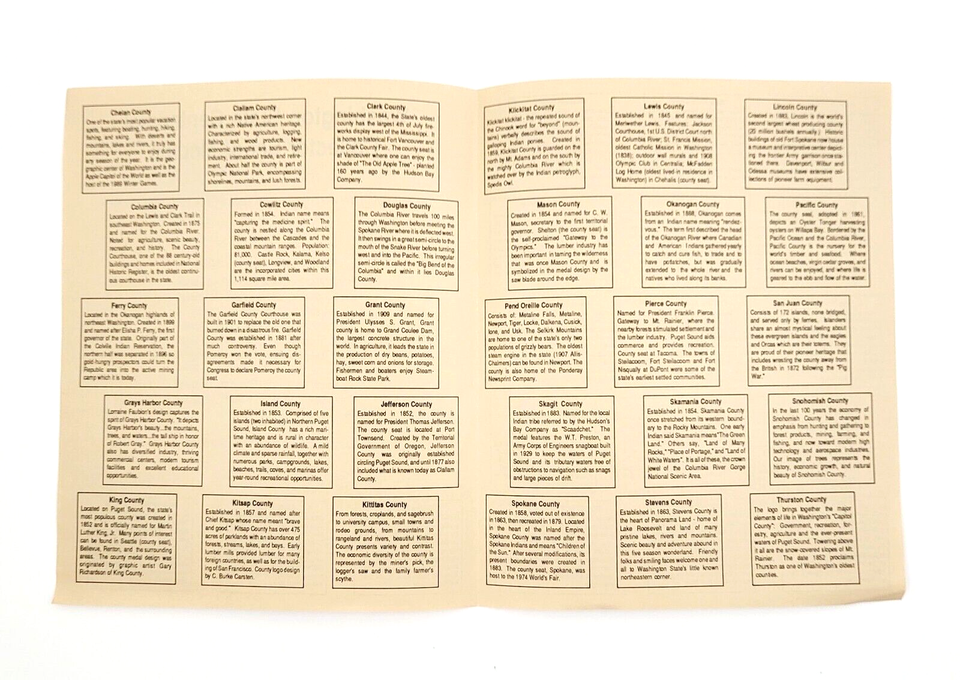 Chelan County
One of the state's most popular vacation
spots, featuring boating, hunting, hiking,
fishing, and skiing. With deserts and
mountains, lakes and rivers, it truly has
something for everyone to enjoy during
any season of the year. It is the geo-
graphic center of Washington and is the
Apple Capitol of the World as well as the
host of the 1986 Winter Games.
Clallam County
Located in the state's northwest corner
with a rich Native American heritage.
Characterized by agriculture, logging,
fishing, and wood products. New
economic strengths are tourism, light
industry, international trade, and retire-
ment. About half the county is part of
Olympic National Park, encompassing
shorelines, mountains, and lush forests.
Clark County
Established in 1844, the State's oldest
county has the largest 4th of July fire-
works display west of the Mississippi. It
is home to historical Fort Vancouver and
the Clark County Fair. The county seat is
at Vancouver where one can enjoy the
shade of "The Old Apple Tree" - planted
160 years ago by the Hudson Bay
Company.
Klickitat County
Klickitat klickitat - the repeated sound of
the Chinook word for "beyond" (moun-
tains) verbally describes the sound of
galloping Indian ponies. Created in
1859, Klickitat County is guarded on the
north by Mt. Adams and on the south by
the mighty Columbia River which is
watched over by the Indian petroglyph,
Spedis Owl.
Lewis County
Established in 1845 and named for
Meriwether Lewis. Features: Jackson
Courthouse, 1st U.S. District Court north
of Columbia River; St. Francis Mission,
oldest Catholic Mission in Washington
(1838); outdoor wall murals and 1908
Olympic Club in Centralia; McFadden
Log Home (oldest lived in residence in
Washington) in Chehalis (county seat).
Lincoln County
Created in 1883, Lincoln is the world's
second largest wheat producing county
(20 million bushels annually). Historic
buildings of old Fort Spokane now house
a museum and interpretive center depict-
ing the frontier Army garrison once sta-
tioned there. Davenport, Wilbur and
Odessa museums have extensive col-
lections of pioneer farm equipment.
Columbia County
Located on the Lewis and Clark Trail in
southeast Washington. Created in 1875
and named for the Columbia River.
Noted for agriculture, scenic beauty,
recreation, and history. The County
Courthouse, one of the 88 century-old
buildings and homes included in National
Historic Register, is the oldest continu-
ous courthouse in the state.
Cowlitz County
Formed in 1854. Indian name means
"capturing the medicine spirit." The
county is nestled along the Columbia
River between the Cascades and the
coastal mountain ranges. Population:
81,000. Castle Rock, Kalama, Kelso
(county seat), Longview, and Woodland
are the incorporated cities within this
1,114 square mile area.
Douglas County
The Columbia River travels 100 miles
through Washington before meeting the
Spokane River where it is deflected west.
It then swings in a great semi-circle to the
mouth of the Snake River before turning
west and into the Pacific. This irregular
semi-circle is called the "Big Bend of the
Columbia" and within it lies Douglas
County.
Mason County
Created in 1854 and named for C. W.
Mason, secretary to the first territorial
governor. Shelton (the county seat) is
the self-proclaimed "Gateway to the
Olympics." The lumber industry has
been important in taming the wilderness
that was once Mason County and is
symbolized in the medal design by the
saw blade around the edge.
Okanogan County
Established in 1888, Okanogan comes
from an Indian name meaning "rendez-
vous." The term first described the head
of the Okanogan River where Canadian
and American Indians gathered yearly
to catch and cure fish, to trade and to
have potlatches, but was gradually
extended to the whole river and the
natives who lived along its banks.
Pacific County
The county seal, adopted in 1981,
depicts an Oyster Tonger harvesting
oysters on Willapa Bay. Bordered by the
Pacific Ocean and the Columbia River,
Pacific County is the nursery for the
world's timber and seafood. Where
ocean beaches, virgin cedar groves, and
rivers can be enjoyed, and where life is
geared to the ebb and flow of the water.
Ferry County
Located in the Okanogan highlands of
northeast Washington. Created in 1899
and named after Elisha P. Ferry, the first
governor of the state. Originally part of
the Colville Indian Reservation, the
northern half was separated in 1896 so
gold-hungry prospectors could turn the
Republic area into the active mining
camp which it is today.
Garfield County
The Garfield County Courthouse was
built in 1901 to replace the old one that
burned down in a disastrous fire. Garfield
County was established in 1881 after
much controversy. Even though
Pomeroy won the vote, ensuing dis-
agreements made it necessary for
Congress to declare Pomeroy the county
seat.
Grant County
Established in 1909 and named for
President Ulysses S. Grant, Grant
county is home to Grand Coulee Dam,
the largest concrete structure in the
world. In agriculture, it leads the state in
the production of dry beans, potatoes,
hay, sweet corn and onions for storage.
Fishermen and boaters enjoy Steam-
boat Rock State Park.
Pend Oreille County
Consists of: Metaline Falls, Metaline,
Newport, Tiger, Locke, Dalkena, Cusick,
Ione, and Usk. The Selkirk Mountains
are home to one of the state's only two
populations of grizzly bears. The oldest
steam engine in the state (1907 Allis-
Chalmers) can be found in Newport. The
county is also home of the Ponderay
Newsprint Company.
Pierce County
Named for President Franklin Pierce.
Gateway to Mt. Rainier, where the
nearby forests stimulated settlement and
the lumber industry. Puget Sound aids
commerce and provides recreation.
County seat at Tacoma. The towns of
Steilacoom, Fort Steilacoom and Fort
Nisqually at DuPont were some of the
state's earliest settled communities.
San Juan County
Consists of 172 islands, none bridged,
and served only by ferries. Islanders
share an almost mystical feeling about
these evergreen islands and the eagles
and Orcas which are their totems. They
are proud of their pioneer heritage that
includes wresting the county away from
the British in 1872 following the "Pig
War."
Grays Harbor County
Lorraine Faubion's design captures the
spirit of Grays Harbor County. "It depicts
Grays Harbor's beauty...the mountains,
trees, and waters...the tall ship in honor
of Robert Gray." Grays Harbor County
also has diversified industry, thriving
commercial centers, modern tourism
facilities and excellent educational
opportunities.
Island County
Established in 1853. Comprised of five
islands (two inhabited) in Northern Puget
Sound, Island County has a rich mari-
time heritage and is rural in character
with an abundance of wildlife. A mild
climate and sparse rainfall, together with
numerous parks, campgrounds, lakes,
beaches, trails, coves, and marinas offer
year-round recreational opportunities.
Jefferson County
Established in 1852, the county is
named for President Thomas Jefferson.
The county seat is located at Port
Townsend. Created by the Territorial
Government of Oregon, Jefferson
County was originally established
circling Puget Sound, and until 1877 also
included what is known today as Clallam
County.
Skagit County
Established in 1883. Named for the local
Indian tribe referred to by the Hudson's
Bay Company as "Scaadchet." The
medal features the W.T. Preston, an
Army Corps of Engineers snagboat built
in 1929 to keep the waters of Puget
Sound and its tributary waters free of
obstructions to navigation such as snags
and large pieces of drift.
Skamania County
Established in 1854. Skamania County
once stretched from its western bound-
ary to the Rocky Mountains. One early
Indian said Skamania means "The Green
Land." Others say, "Land of Many
Rocks," "Place of Portage," and "Land of
White Waters". It is all of these, the crown
jewel of the Columbia River Gorge
National Scenic Area.
Snohomish County
In the last 100 years the economy of
Snohomish County has changed in
emphasis from hunting and gathering to
forest products, mining, farming, and
fishing, and now toward modern high
technology and aerospace industries.
Our image of trees represents the
history, economic growth, and natural
beauty of Snohomish County.
King County
Located on Puget Sound, the state's
most populous county was created in
1852 and is officially named for Martin
Luther King, Jr. Many points of interest
can be found in Seattle (county seat),
Bellevue, Renton, and the surrounding
areas. The county medal design was
originated by graphic artist Gary
Richardson of King County.
Kitsap County
Established in 1857 and named after
Chief Kitsap whose name meant "brave
and good." Kitsap County has over 475
acres of parklands with an abundance of
forests, streams, lakes, and bays. Early
lumber mills provided lumber for many
foreign countries, as well as for the build-
ing of San Francisco. County logo design
by C. Burke Carsten.
Kittitas County
From forests, croplands, and sagebrush
to university campus, small towns and
rodeo grounds, from mountains to
rangeland and rivers, beautiful Kittitas
County presents variety and contrast.
The economic diversity of the county is
represented by the miner's pick, the
logger's saw and the family farmer's
scythe.
Spokane County
Created in 1858, voted out of existence
in 1863, then recreated in 1879. Located
in the heart of the Inland Empire,
Spokane County was named after the
Spokane Indians and means "Children of
the Sun." After several modifications, its
present boundaries were created in
1883. The county seat, Spokane, was
host to the 1974 World's Fair.
Stevens County
Established in 1863, Stevens County is
the heart of Panorama Land - home of
Lake Roosevelt and land of many
pristine lakes, rivers and mountains.
Scenic beauty and adventure abound in
this five season wonderland. Friendly
folks and smiling faces welcome one and
all to Washington State's little known
northeastern corner.
Thurston County
The logo brings together the major
elements of life in Washington's "Capitol
County": Government, recreation, for-
estry, agriculture and the ever-present
waters of Puget Sound. Towering above
it all are the snow-covered slopes of Mt.
Rainier. The date 1852 proclaims
Thurston as one of Washington's oldest
counties.